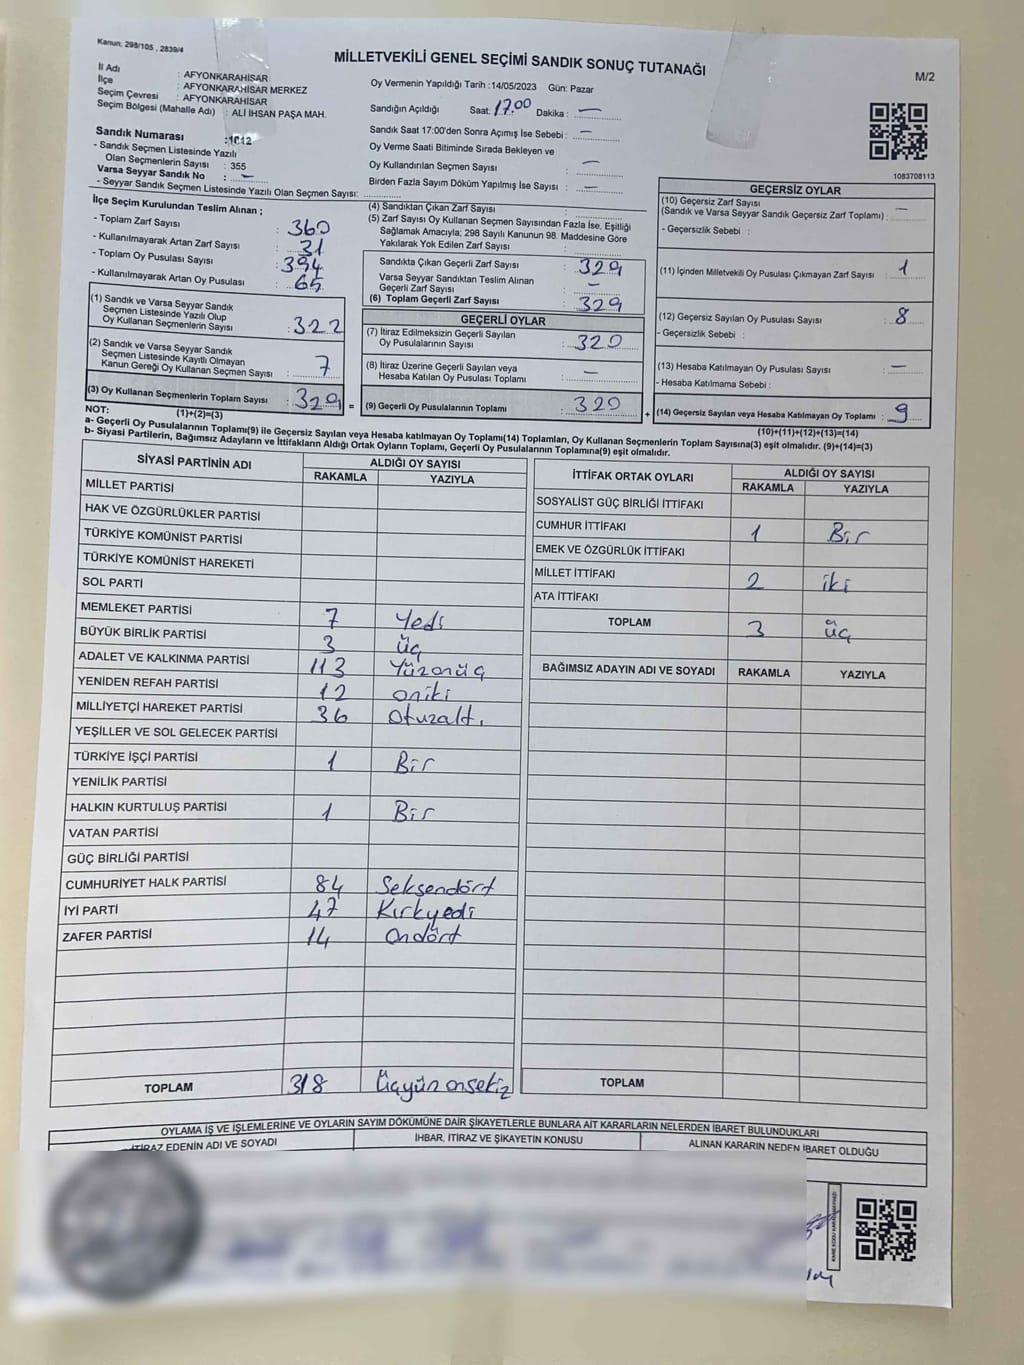 Kanun; 298/105 , 2839/4
MİLLETVEKİLİ GENEL SEÇİMİ SANDIK SONUÇ TUTANAĞI
M/2
İl Adı : AFYONKARAHİSAR
İlçe : AFYONKARAHİSAR MERKEZ
Seçim Çevresi : AFYONKARAHİSAR
Seçim Bölgesi (Mahalle Adı) : ALİ İHSAN PAŞA MAH.
Sandık Numarası : 1012
- Sandık Seçmen Listesinde Yazılı
Olan Seçmenlerin Sayısı : 355
Varsa Seyyar Sandık No : —
- Seyyar Sandık Seçmen Listesinde Yazılı Olan Seçmen Sayısı:
Oy Vermenin Yapıldığı Tarih :14/05/2023 Gün: Pazar
Sandığın Açıldığı Saat: 17.00 Dakika : —
Sandık Saat 17:00'den Sonra Açımış İse Sebebi : —
Oy Verme Saati Bitiminde Sırada Bekleyen ve
Oy Kullandırılan Seçmen Sayısı : —
Birden Fazla Sayım Döküm Yapılmış İse Sayısı : —
1083708113
İlçe Seçim Kurulundan Teslim Alınan ;
- Toplam Zarf Sayısı : 360
- Kullanılmayarak Artan Zarf Sayısı : 31
- Toplam Oy Pusulası Sayısı : 394
- Kullanılmayarak Artan Oy Pusulası : 65
(1) Sandık ve Varsa Seyyar Sandık
Seçmen Listesinde Yazılı Olup
Oy Kullanan Seçmenlerin Sayısı : 322
(2) Sandık ve Varsa Seyyar Sandık
Seçmen Listesinde Kayıtlı Olmayan
Kanun Gereği Oy Kullanan Seçmen Sayısı : 7
(3) Oy Kullanan Seçmenlerin Toplam Sayısı : 329 =
(1)+(2)=(3)
(4) Sandıktan Çıkan Zarf Sayısı :
(5) Zarf Sayısı Oy Kullanan Seçmen Sayısından Fazla İse, Eşitliği
Sağlamak Amacıyla; 298 Sayılı Kanunun 98. Maddesine Göre
Yakılarak Yok Edilen Zarf Sayısı :
Sandıkta Çıkan Geçerli Zarf Sayısı : 329
Varsa Seyyar Sandıktan Teslim Alınan
Geçerli Zarf Sayısı : —
(6) Toplam Geçerli Zarf Sayısı : 329
GEÇERLİ OYLAR
(7) İtiraz Edilmeksizin Geçerli Sayılan
Oy Pusulalarının Sayısı : 320
(8) İtiraz Üzerine Geçerli Sayılan veya
Hesaba Katılan Oy Pusulası Toplamı : —
(9) Geçerli Oy Pusulalarının Toplamı : 320 +
GEÇERSİZ OYLAR
(10) Geçersiz Zarf Sayısı
(Sandık ve Varsa Seyyar Sandık Geçersiz Zarf Toplamı) : —
- Geçersizlik Sebebi :
(11) İçinden Milletvekili Oy Pusulası Çıkmayan Zarf Sayısı : 1
(12) Geçersiz Sayılan Oy Pusulası Sayısı : 8
- Geçersizlik Sebebi :
(13) Hesaba Katılmayan Oy Pusulası Sayısı : —
- Hesaba Katılmama Sebebi :
(14) Geçersiz Sayılan veya Hesaba Katılmayan Oy Toplamı : 9
(10)+(11)+(12)+(13)=(14)
NOT:
a- Geçerli Oy Pusulalarının Toplamı(9) ile Geçersiz Sayılan veya Hesaba katılmayan Oy Toplamı(14) Toplamları, Oy Kullanan Seçmenlerin Toplam Sayısına(3) eşit olmalıdır. (9)+(14)=(3)
b- Siyasi Partilerin, Bağımsız Adayların ve İttifakların Aldığı Ortak Oyların Toplamı, Geçerli Oy Pusulalarının Toplamına(9) eşit olmalıdır.
SİYASİ PARTİNİN ADI ALDIĞI OY SAYISI
RAKAMLA YAZIYLA
MİLLET PARTİSİ
HAK VE ÖZGÜRLÜKLER PARTİSİ
TÜRKİYE KOMÜNİST PARTİSİ
TÜRKİYE KOMÜNİST HAREKETİ
SOL PARTİ
MEMLEKET PARTİSİ 7 Yedi
BÜYÜK BİRLİK PARTİSİ 3 üç
ADALET VE KALKINMA PARTİSİ 113 Yüzonüç
YENİDEN REFAH PARTİSİ 12 oniki
MİLLİYETÇİ HAREKET PARTİSİ 36 Otuzaltı
YEŞİLLER VE SOL GELECEK PARTİSİ
TÜRKİYE İŞÇİ PARTİSİ 1 Bir
YENİLİK PARTİSİ
HALKIN KURTULUŞ PARTİSİ 1 Bir
VATAN PARTİSİ
GÜÇ BİRLİĞİ PARTİSİ
CUMHURİYET HALK PARTİSİ 84 Seksendört
İYİ PARTİ 47 Kırkyedi
ZAFER PARTİSİ 14 Ondört
TOPLAM 318 Üçyün onsekiz
İTTİFAK ORTAK OYLARI ALDIĞI OY SAYISI
RAKAMLA YAZIYLA
SOSYALİST GÜÇ BİRLİĞİ İTTİFAKI
CUMHUR İTTİFAKI 1 Bir
EMEK VE ÖZGÜRLÜK İTTİFAKI
MİLLET İTTİFAKI 2 iki
ATA İTTİFAKI
TOPLAM 3 üç
BAĞIMSIZ ADAYIN ADI VE SOYADI RAKAMLA YAZIYLA
TOPLAM
OYLAMA İŞ VE İŞLEMLERİNE VE OYLARIN SAYIM DÖKÜMÜNE DAİR ŞİKAYETLERLE BUNLARA AİT KARARLARIN NELERDEN İBARET BULUNDUKLARI
İTİRAZ EDENİN ADI VE SOYADI İHBAR, İTİRAZ VE ŞİKAYETİN KONUSU ALINAN KARARIN NEDEN İBARET OLDUĞU